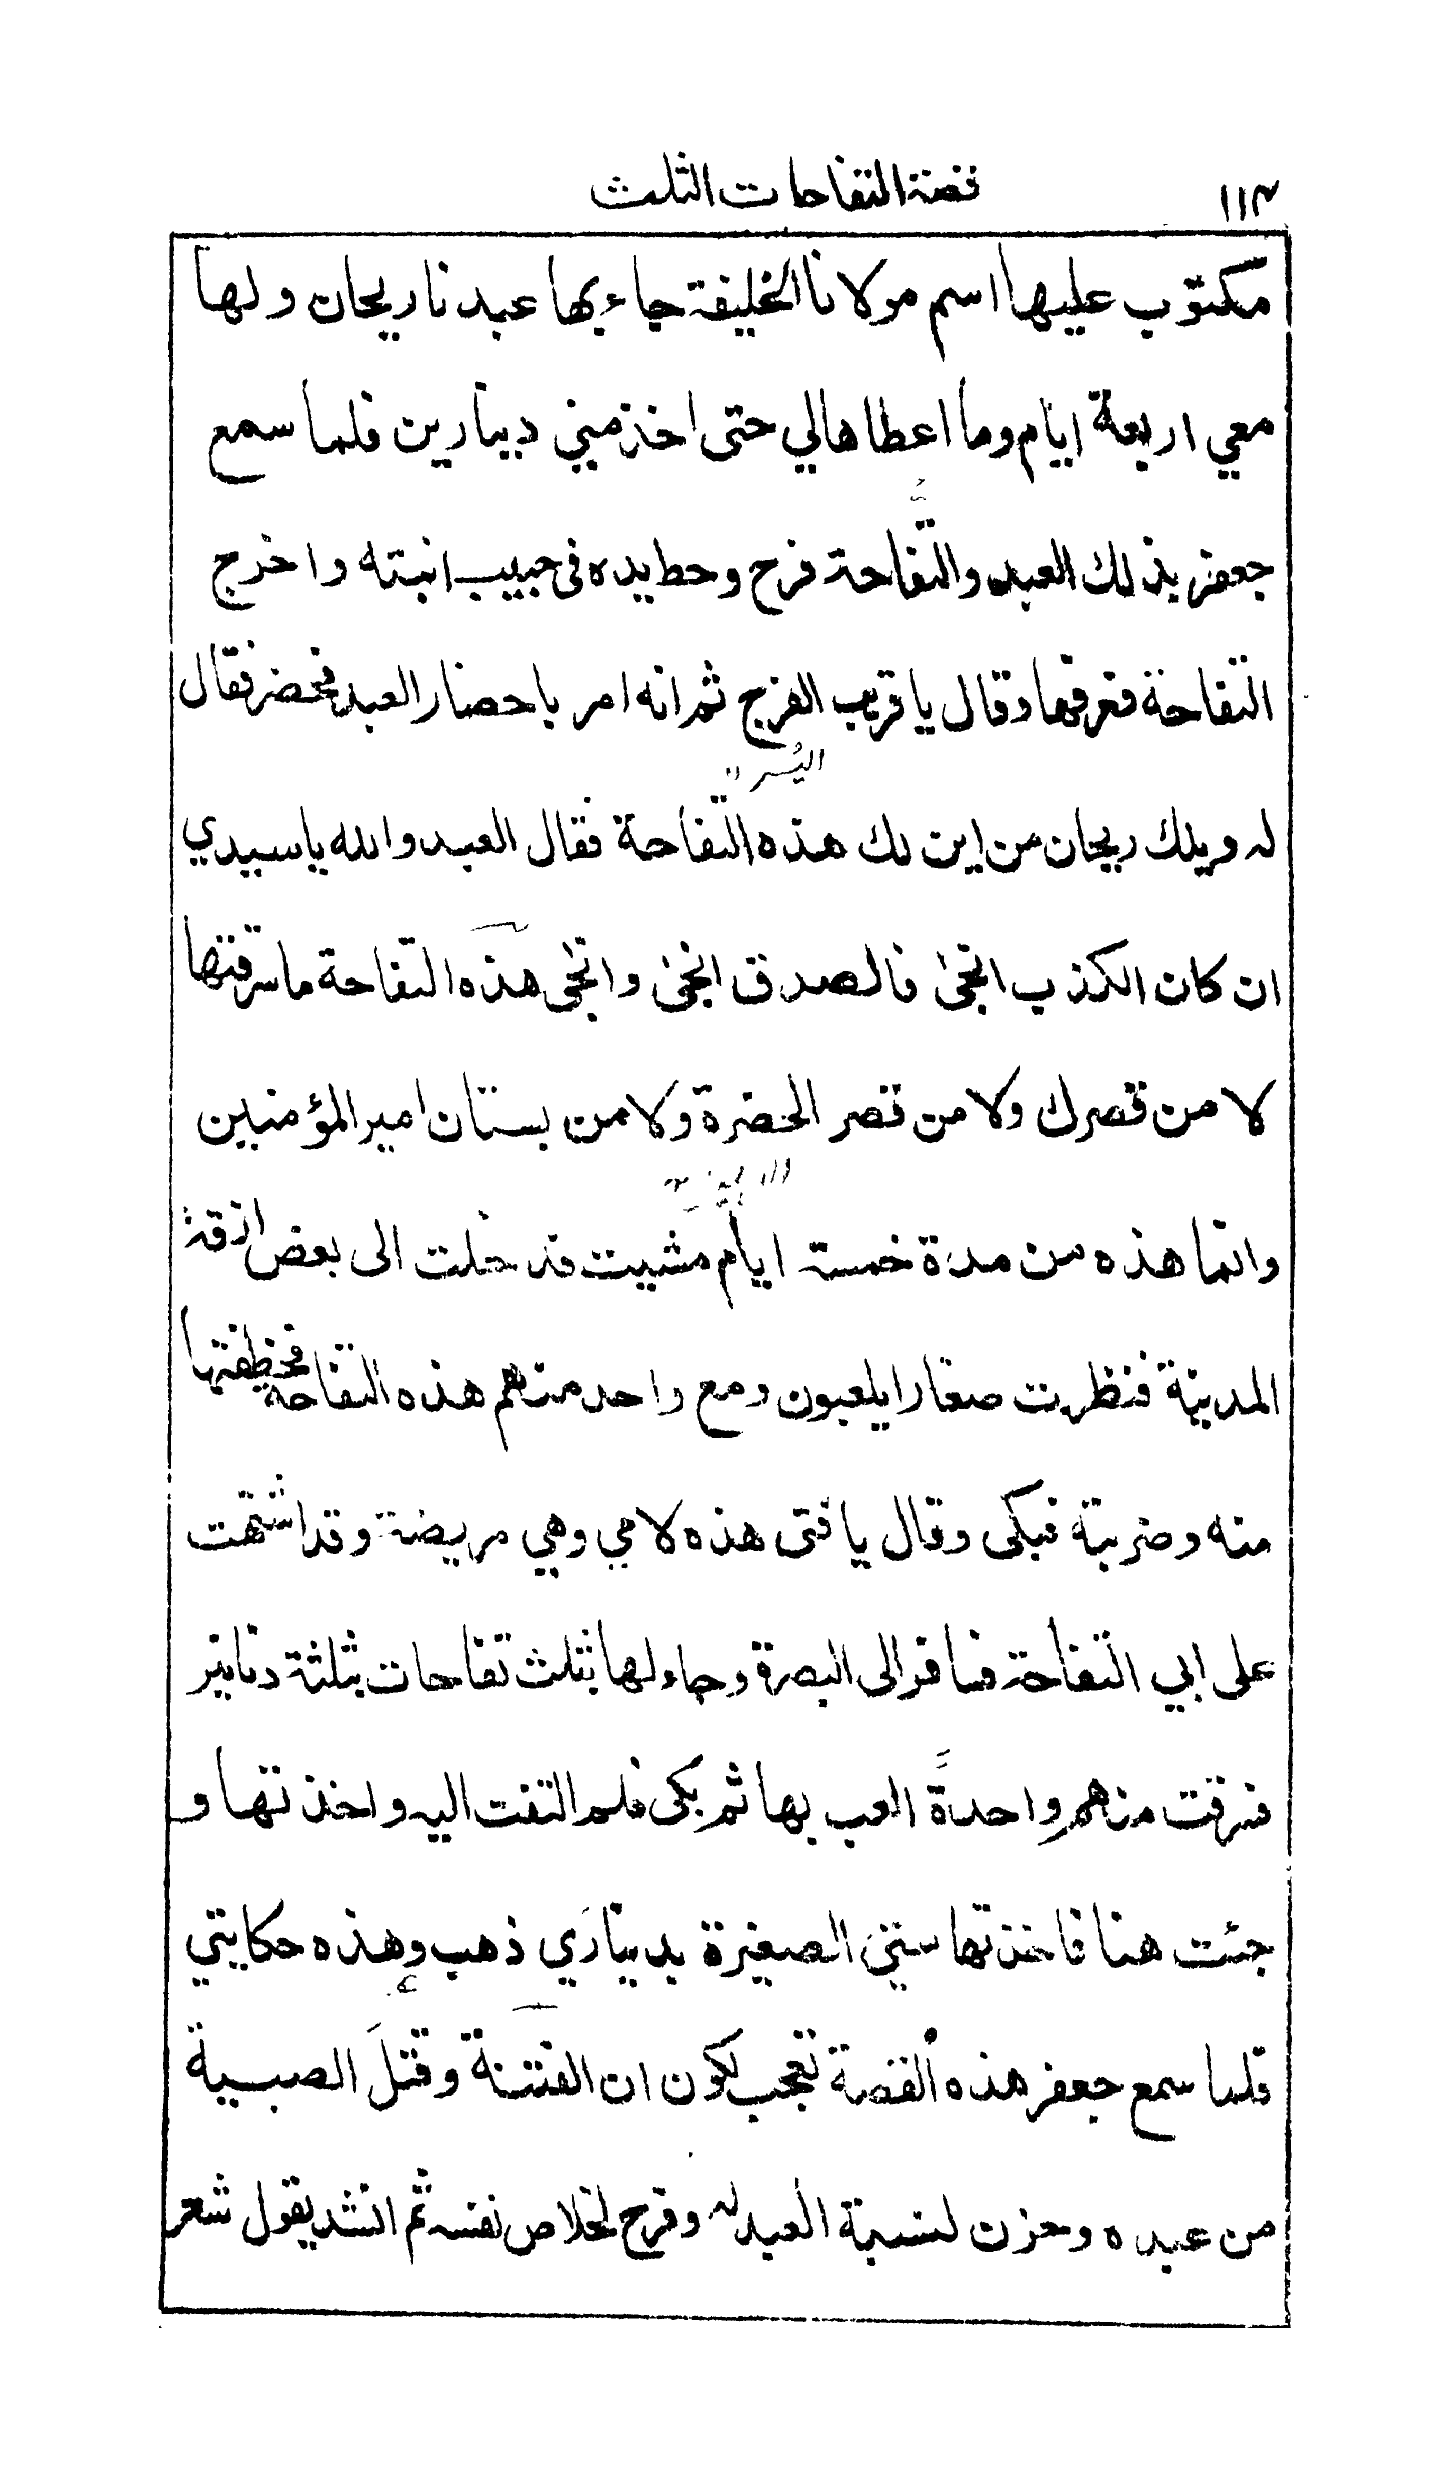 ١١٣ قصة التفاحات الثلث
مكتوب عليها اسم مولانا الخليفة جاء بها عبدنا ريحان ولها
معي اربعة ايام وما اعطاها لي حتى اخذ مني دينارين فلما سمع
جعفر بذلك العبد والتفاحة فرح وحط يده فى جبيب ابنته واخرج
التفاحة فعرفها وقال يا قريب الفرج ثم انه امر باحضار العبد فحضر فقال
اليُسر
له ويلك ريحان من اين لك هذه التفاحة فقال العبد والله يا سيدي
ان كان الكذب انجى فالصدق انجى وانجى هذه التفاحة ما سرقتها
لا من قصرك ولا من قصر الحضرة ولا من بستان امير المؤمنين
وانما هذه من مدة خمسة ايام مشيت فدخلت الى بعض ازقة
المدينة فنظرت صغارا يلعبون ومع واحد منهم هذه التفاحة فخظفتها
منه وضربتة فبكى وقال يا فتى هذه لامي وهي مريضة وقد اشتهت
على ابي التفاحة فسافر الى البصرة وجاء لها بثلث تفاحات بثلثة دنانير
فسرقت منهم واحدة العب بها ثم بكى فلم التفت اليه واخذتها و
جئت هنا فاخذتها ستي الصغيرة بديناري ذهب وهذه حكايتي
فلما سمع جعفر هذه القصة تعجب لكون ان الفتنة وقتل الصبية
من عبده وحزن لنسبة العبد له وفرح لخلاص نفسه ثم انشد يقول شعر